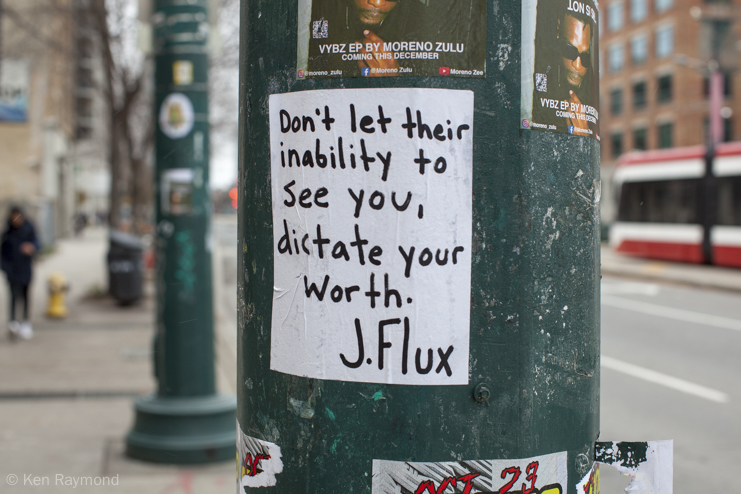 VYBZ EP BY MORENO ZULU
COMING THIS DECEMBER
@moreno_zulu @Moreno Zulu Moreno Zee
VYBZ EP BY MORE
COMING THIS DECEM
@moreno_zulu
Don't let their
inability to
see you,
dictate your
worth.
J.Flux
OCT 23
© Ken Raymond